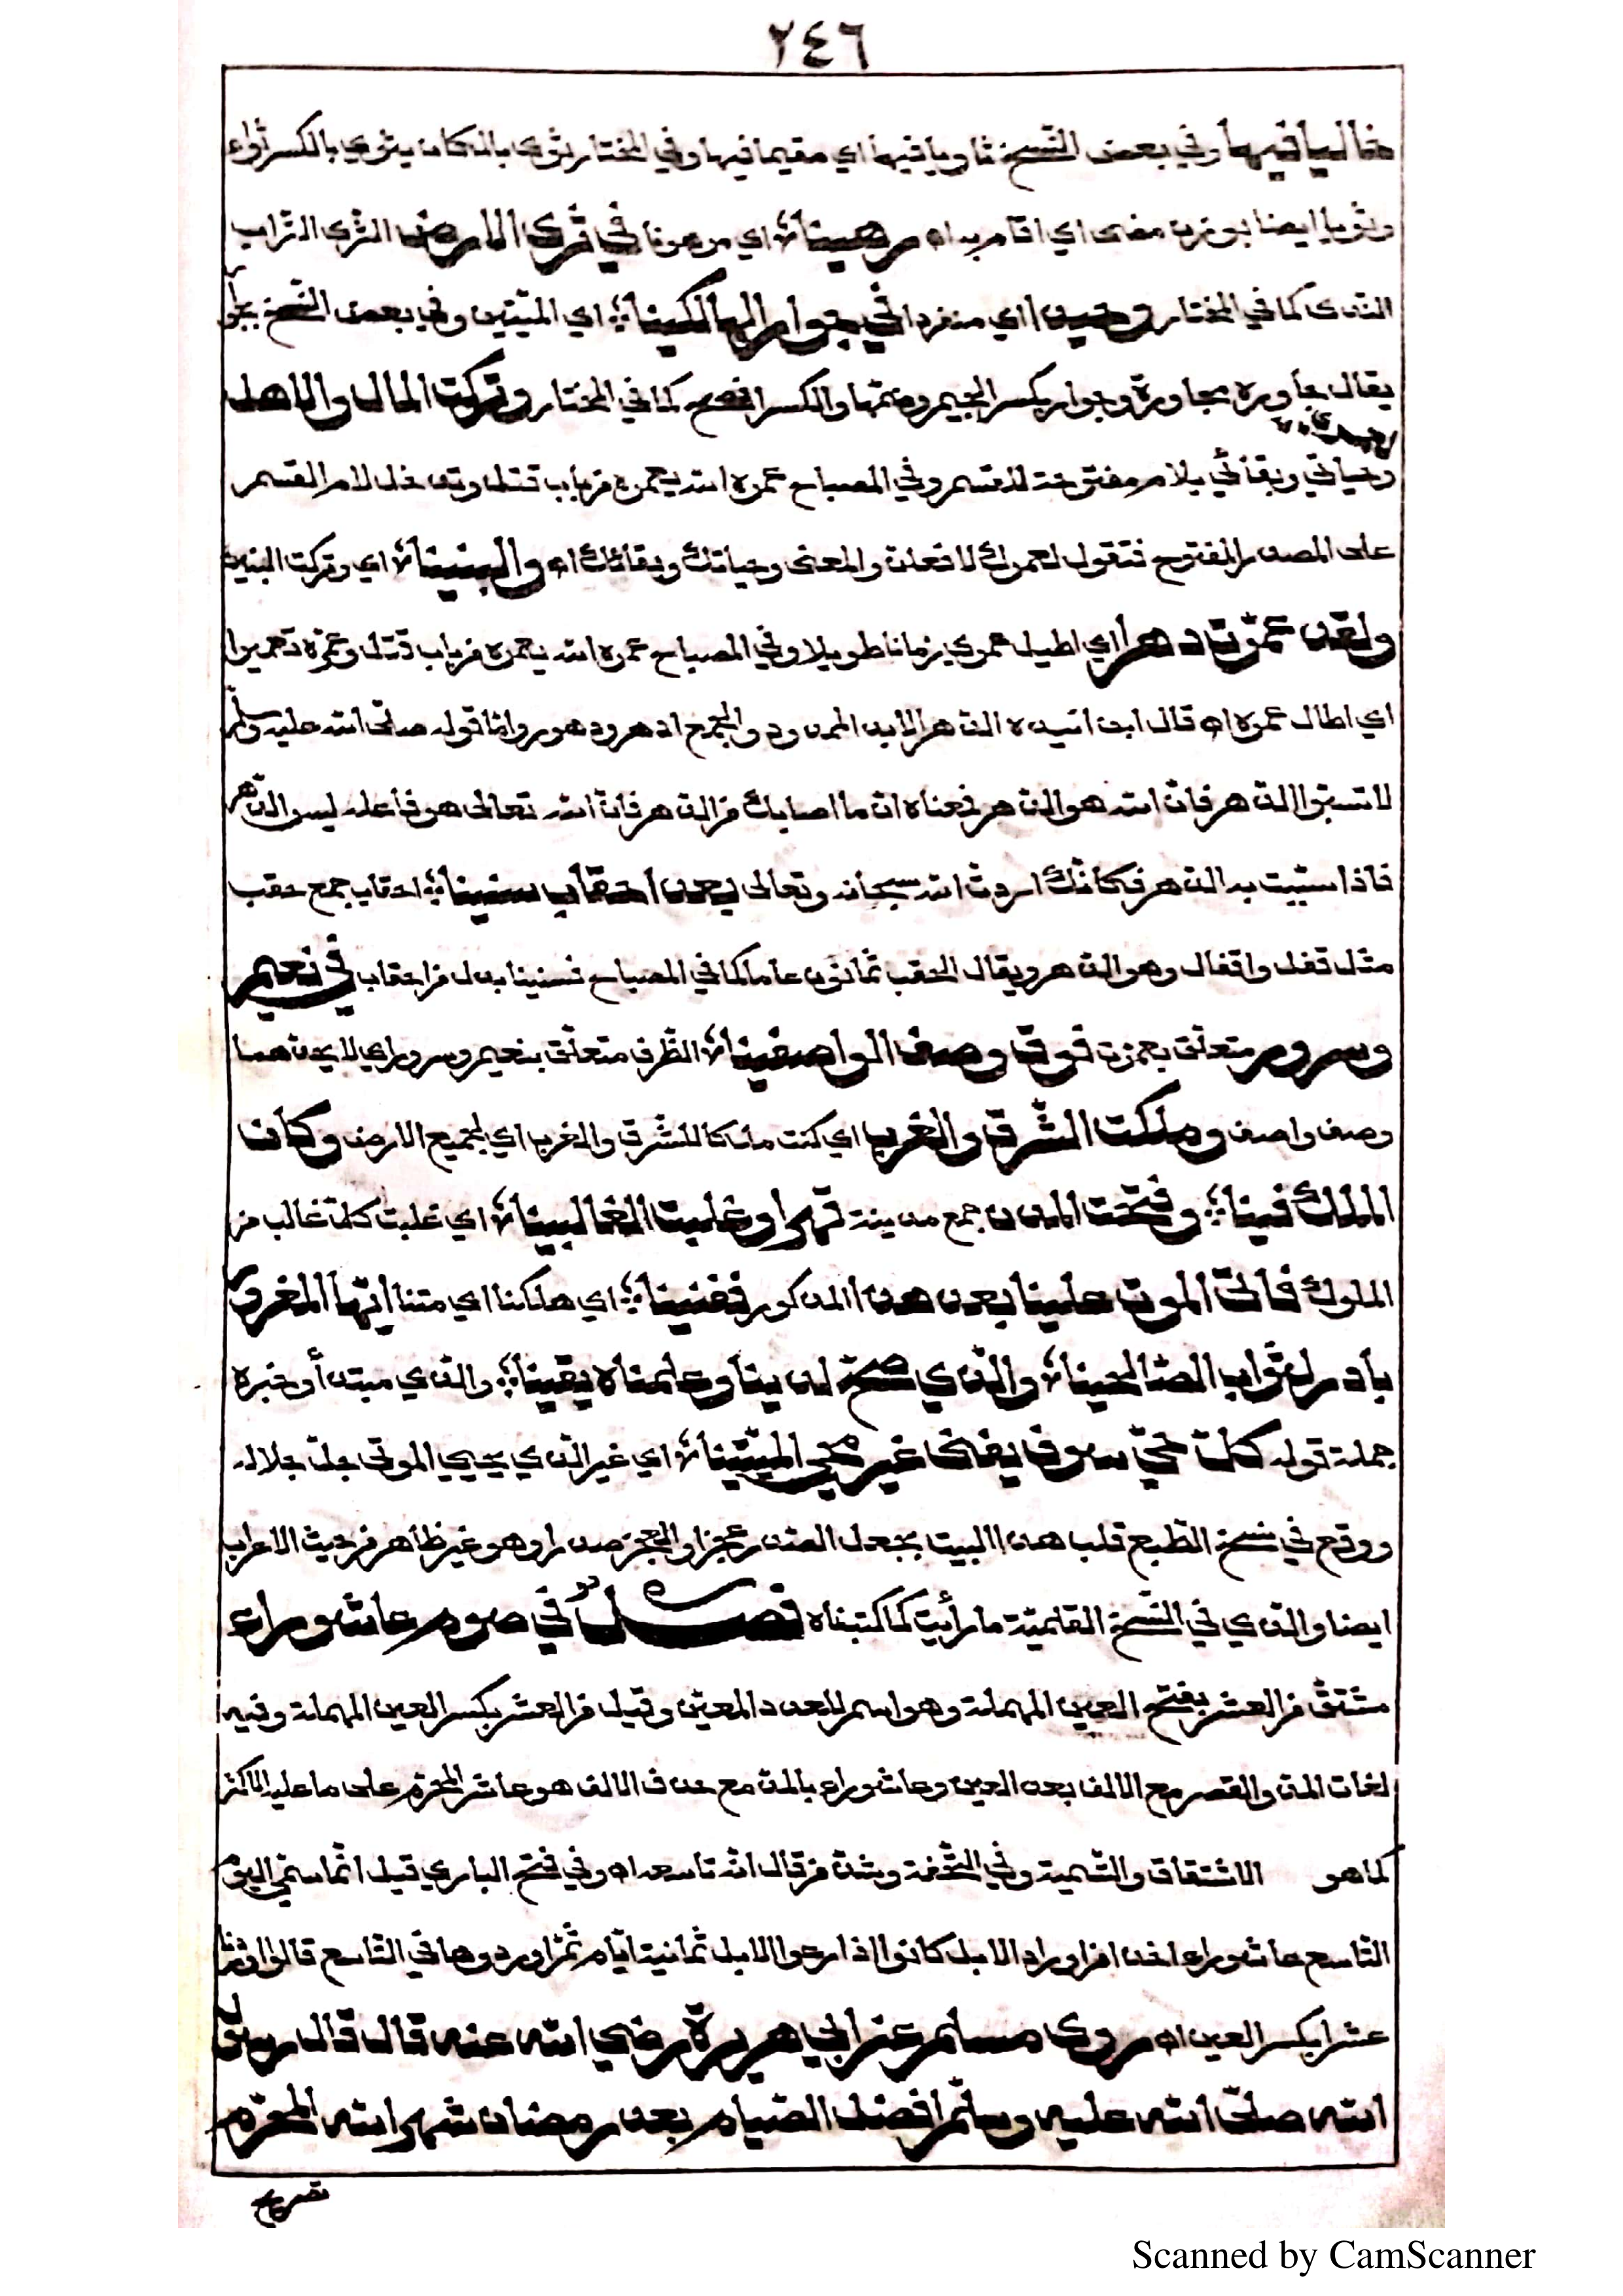 ٢٤٦
خاليا فيها وفي بعض النسخ ثاويا فيها اي مقيما فيها وفي المختار ثوى بالمكان يثوي بالكسر ثواء
وثويا ايضا بوزن مضى اي اقام به اه رهينا؛ اي مرهونا في ثرى الارض الثرى التراب
الندى كما في المختار وحيدا اي منفردا في جوار الهالكينا؛ اي الميّتين وفي بعض النسخ
يقال جاوره مجاورة وجوار بكسر الجيم وضمّها والكسر افصح كما في المختار وتركت المال والاهل
وحياتي وبقائي بلام مفتوحة للقسم وفي المصباح عمره الله يعمره من باب قتل وتدخل لام القسم
على المصدر المفتوح فتقول لعمرك لا فعلن والمعنى وحياتك وبقائك اه والبنينا؛ اي وتركت البنين
ولقد عمّرت دهرا اي اطيل عمري زمانا طويلا وفي المصباح عمره الله يعمره من باب قتل وعمّره تعميرا
اي اطال عمره اه قال ابن سيده الدهر الابد الممدود والجمع ادهر ودهور واما قوله صلّى الله عليه وسلّم
لا تسبّوا الدهر فانّ الله هو الدهر فمعناه ان ما اصابك من الدهر فانّ الله تعالى هو فاعله ليس الدهر
فاذا سببت به الدهر فكانّك اردت الله سبحانه وتعالى بعد احقاب سنينا؛ احقاب جمع حقب
مثل قفل واقفال وهو الدهر ويقال الحقب ثمانون عاما كما في المصباح فسنينا بدل من احقاب في نعيم
وسرور متعلق بعمرت فوق وصف الواصفينا؛ الظرف متعلّق بنعيم وسرور اي لا يحدهما
وصف واصف وملكت الشّرق والغرب اي كنت مالكا للشرق والمغرب اي لجميع الارض وكان
الملك فينا؛ وفتحت المدن جمع مدينة قهرا وغلبت الغالبينا؛ اي غلبت كلّ غالب من
الملوك فاتى الموت علينا بعد هذا المذكور ففنينا؛ اي هلكنا اي متنا ايّها المغرور
بادر لثواب الصّالحينا؛ والذي صحّ لدينا وعلمناه يقينا؛ والذي مبتدأ وخبره
جملة قوله كلّ حيّ سوف يفنى غير محيي الميّتينا؛ اي غير الذي يحيي الموتى جلّ جلاله
ووقع في نسخة الطّبع قلب هذا البيت بجعل الصدر عجزا والعجز صدرا وهو غير ظاهر من حيث الاعراب
ايضا والذي في النّسخة القلميّة ما رأيت كما كتبناه فصل في صوم عاشوراء
مشتقّ من العشر بفتح العين المهملة وهو اسم للعدد المعيّن وقيل من العشر بكسر العين المهملة وفيه
لغات المد والقصر مع الالف بعد العين وعاشوراء بالمد مع حذف الالف هو عاشر المحرّم على ما عليه الاكثر
كما هو الاشتقاق والتّسمية وفي التّحفة وشذ من قال انّه تاسعه اه وفي فتح الباري قيل انّما سمّي اليوم
التّاسع عاشوراء اخذا من اوراد الابل كانوا اذا رعوا الابل ثمانية ايّام ثمّ اوردوها في التّاسع قالوا وردنا
عشرا بكسر العين اه روى مسلم عن ابي هريرة رضي الله عنه قال قال رسول
الله صلّى الله عليه وسلّم افضل الصّيام بعد رمضان شهر الله المحرّم
Scanned by CamScanner